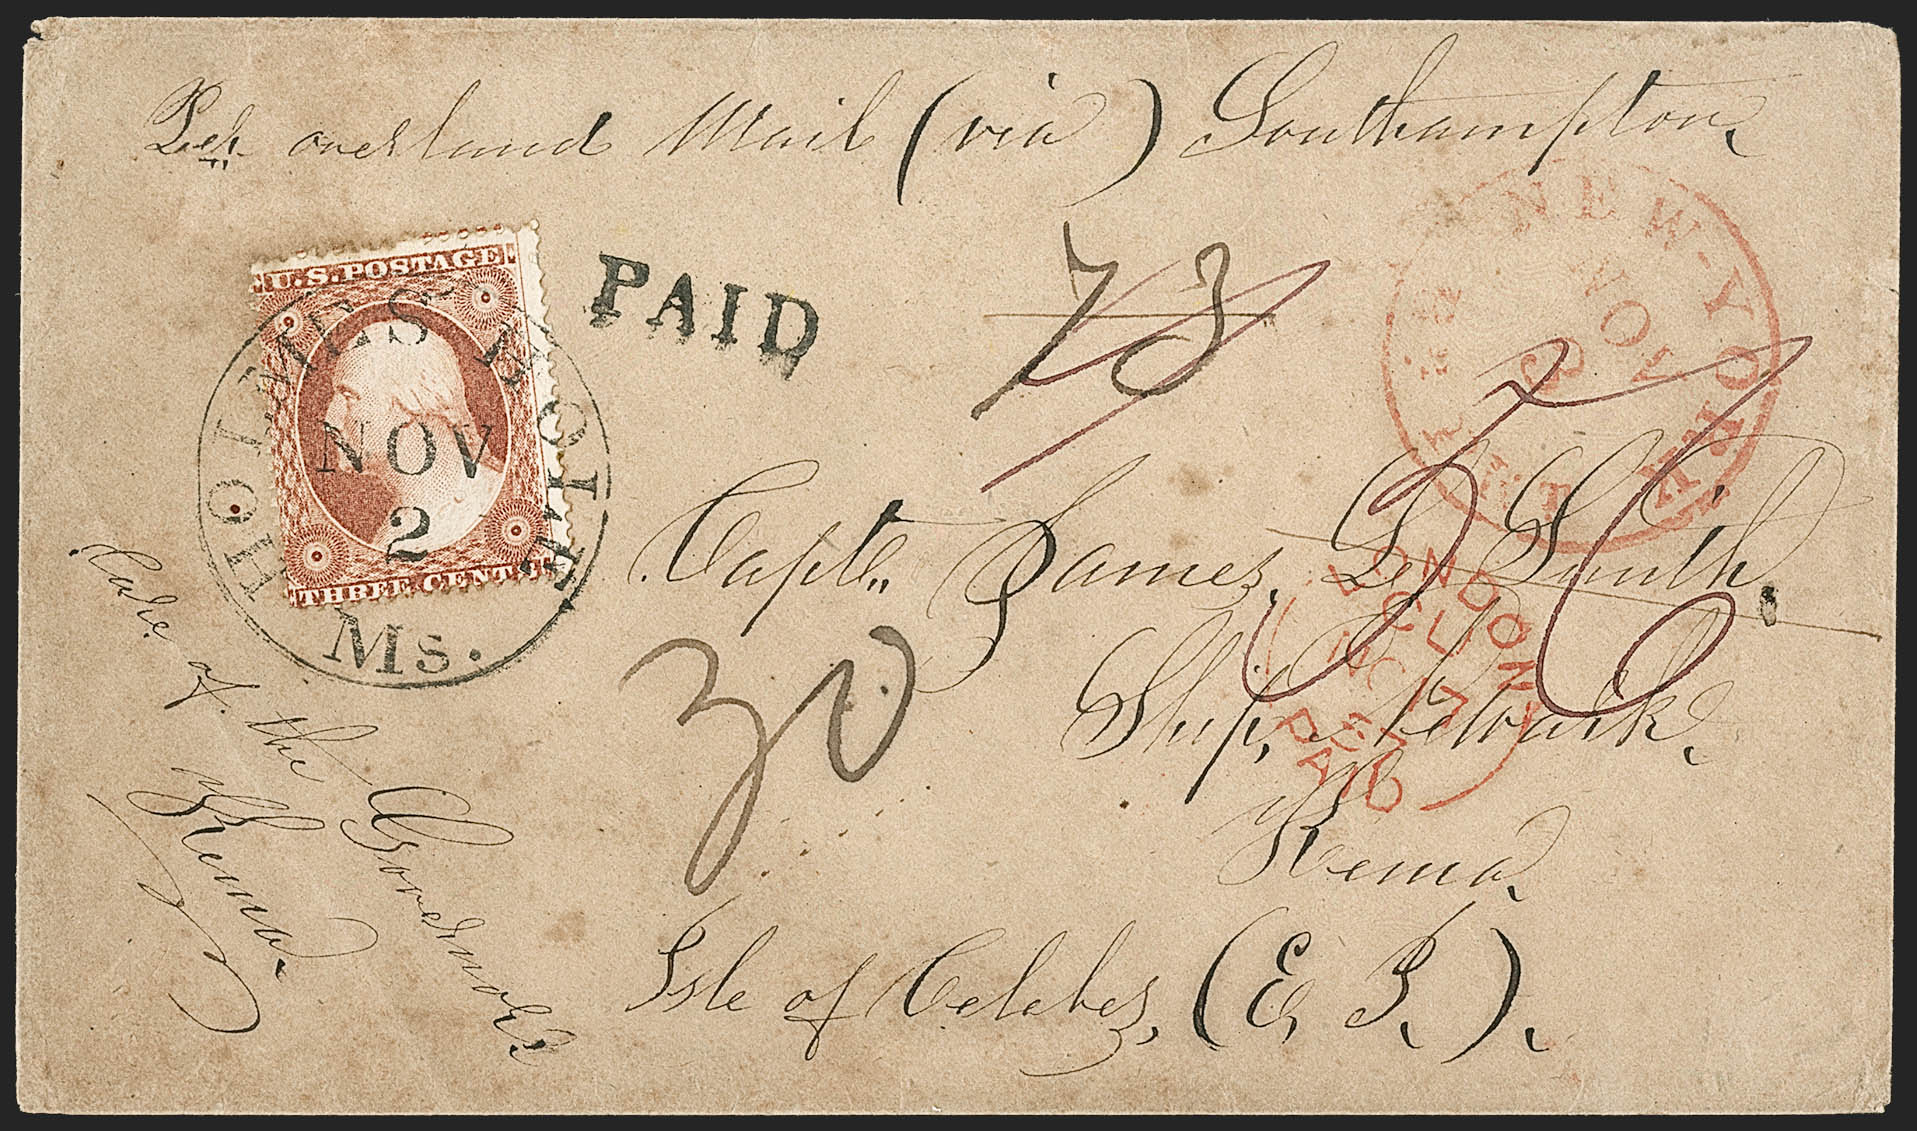 Per overland Mail (via) Southampton,
U.S. POSTAGE
THREE CENTS
HOLMES'S HOLE
NOV
2
Ms.
PAID
73
NEW-YORK
NOV
AM. PKT.
Capt. James L. Smith.
30
Ship, Newark,
LONDON
17
57
PAID
Kema,
Isle of Celebes, (E, I,).
Care of the Governor
Kema.